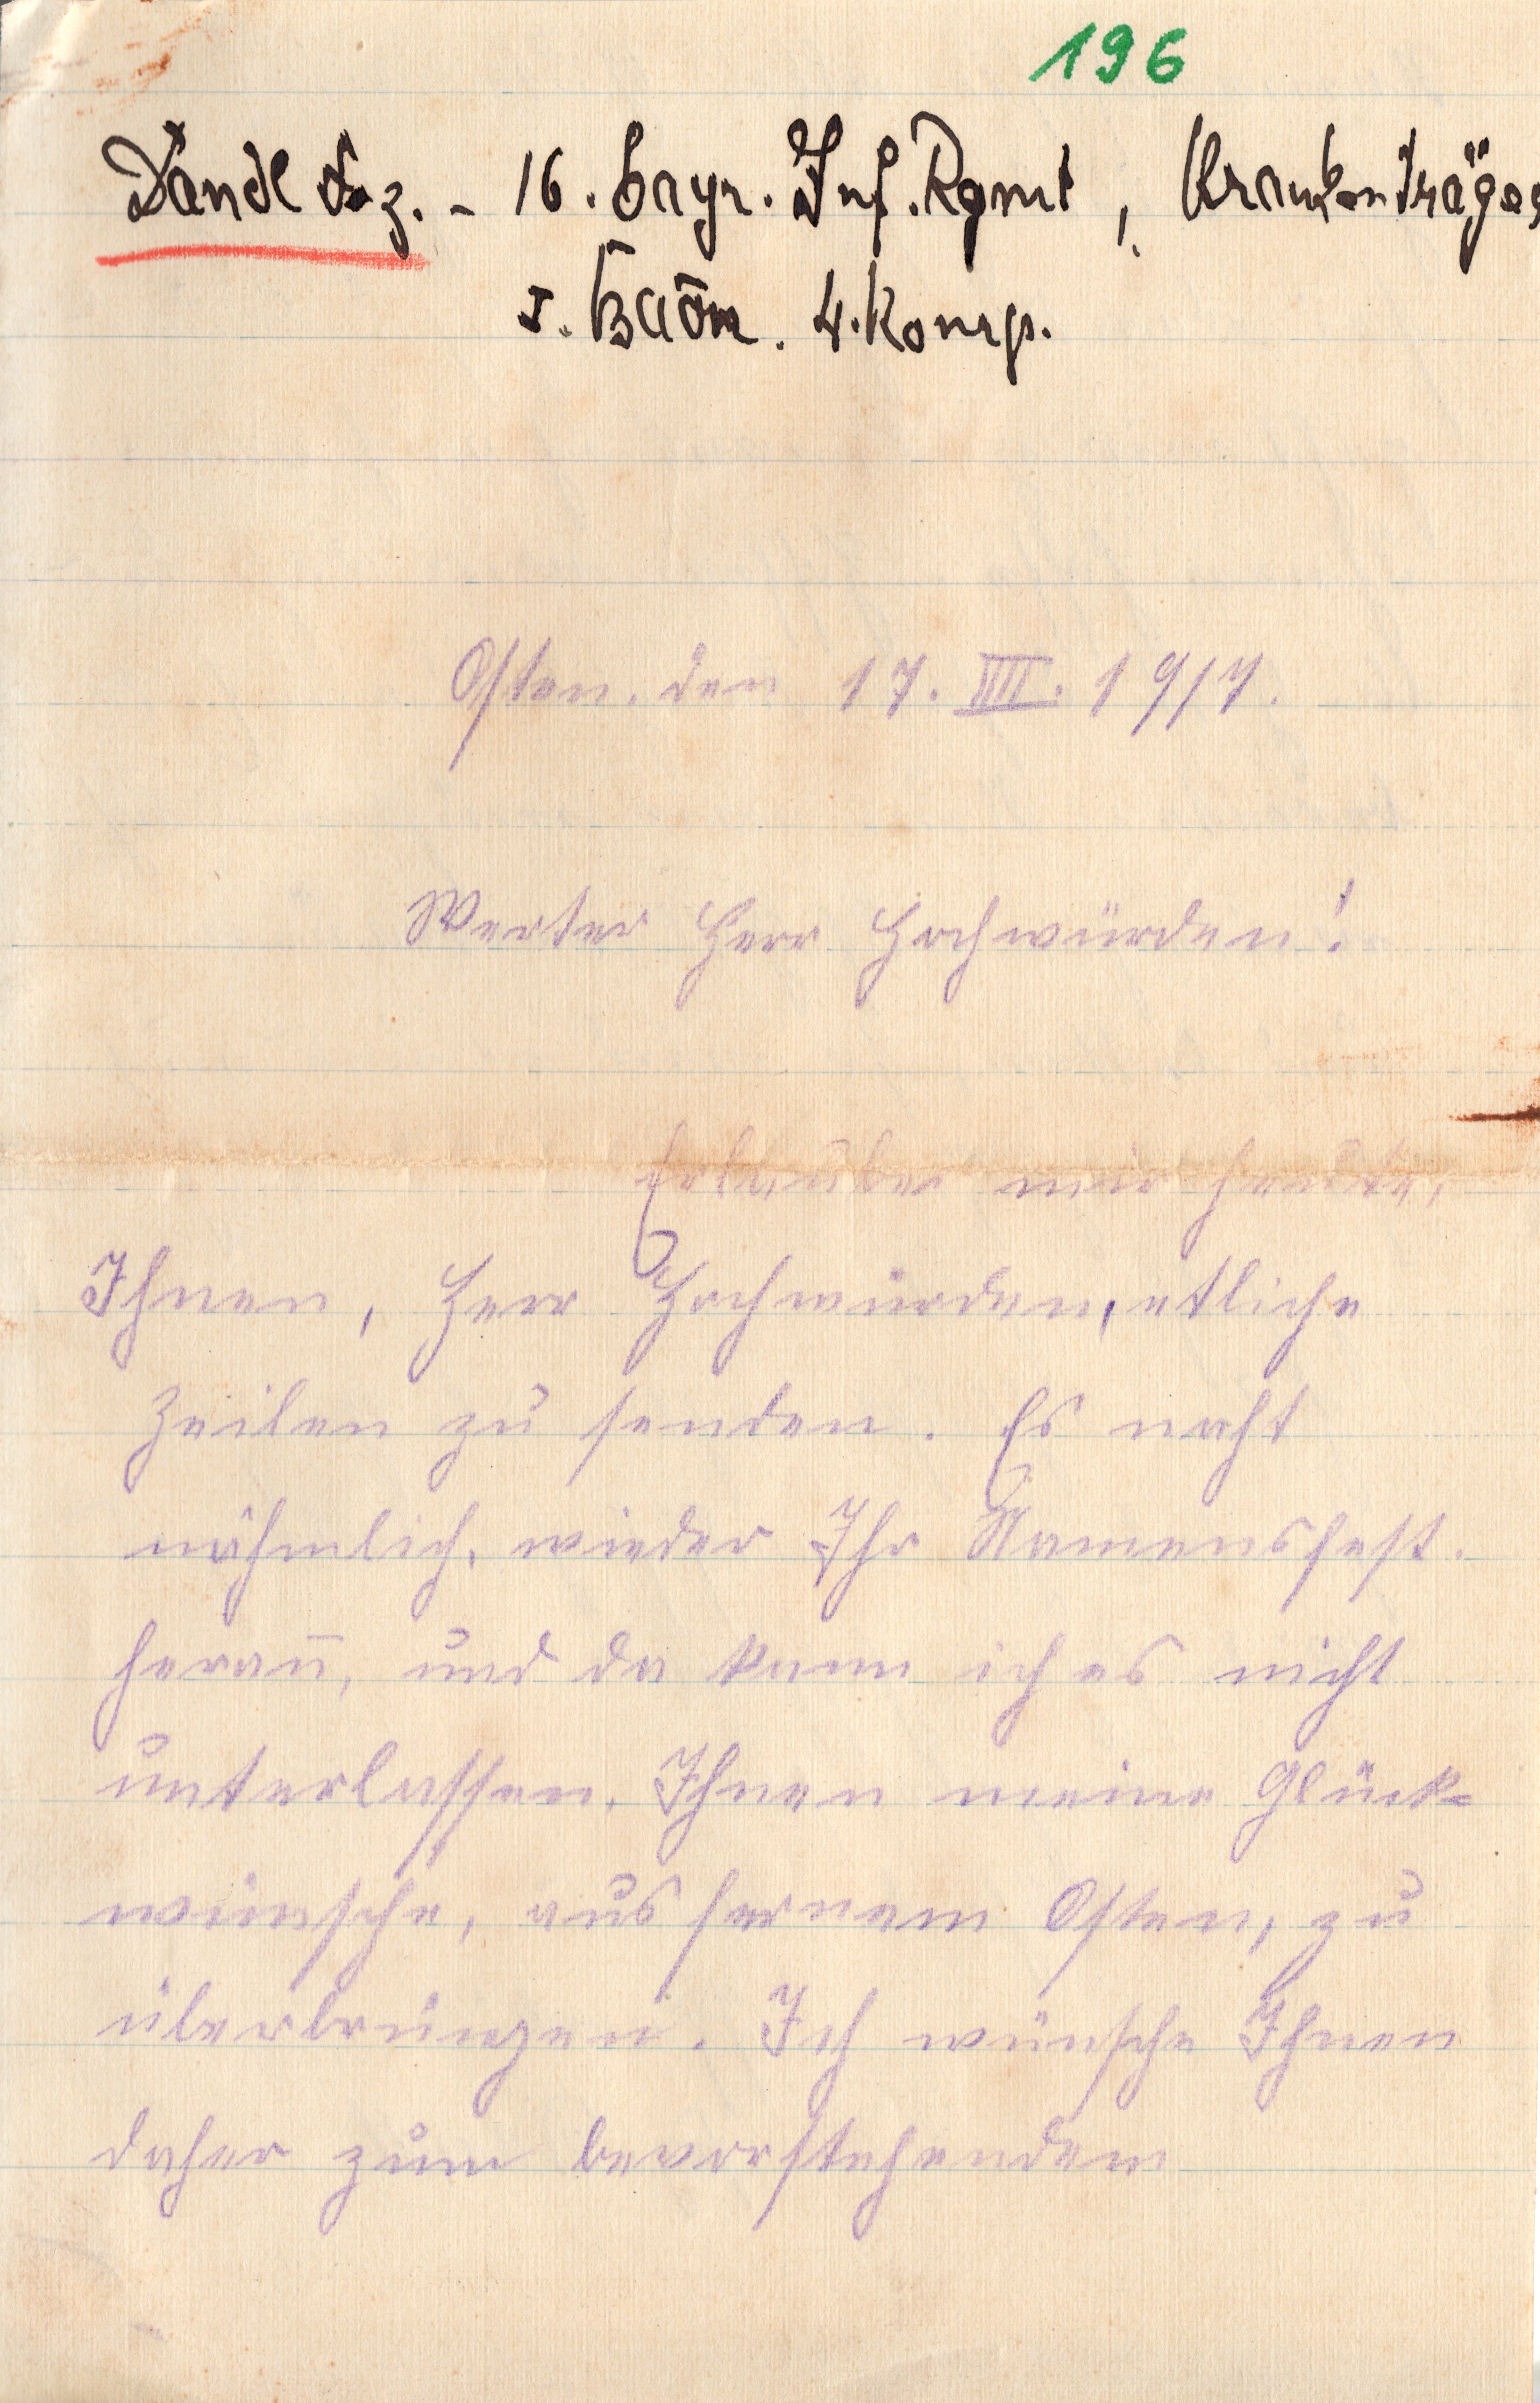 196
Dandl Frz. - 16. bayr. Inf. Rgmt, Krankenträger
I. Baon. 4. Komp.
Osten, den 17. VII. 1917.
Werter Herr Hochwürden!
Erlaube mir heute,
Ihnen, Herr Hochwürden, etliche
Zeilen zu senden. Es naht
nähmlich, wieder Ihr Namensfest.
herann, und da kann ich es nicht
unterlassen, Ihnen meine Glück=
wünsche, aus fernem Osten, zu
überbringen. Ich wünsche Ihnen
daher zum bevorstehendem